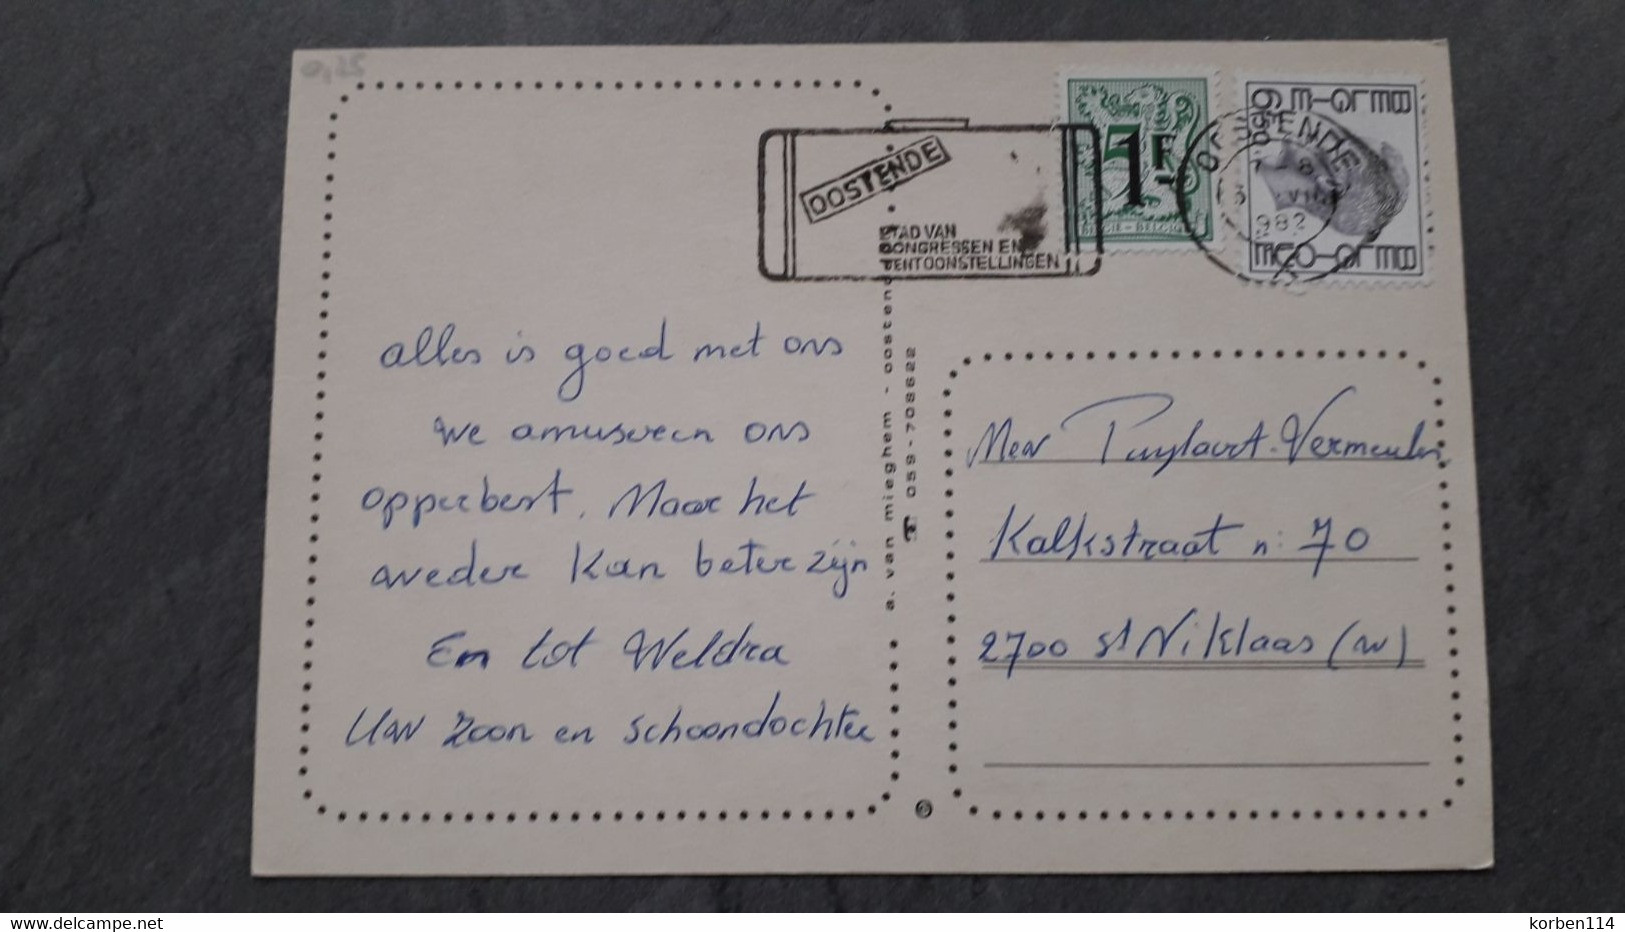 0,25
OOSTENDE
STAD VAN
CONGRESSEN EN
TENTOONSTELLINGEN
1F
BELGIE-BELGIQUE
OOSTENDE
BELGIE
BELGIQUE
alles is goed met ons
We amuseren ons
opperbest. Maar het
weder kan beter zijn
En tot Weldra
Uw zoon en schoondochter
a. van mieghem - oostende
☎ 059-708622
Mew Puylaert-Vermeulen
Kalkstraat n: 70
2700 St Niklaas (w)
www.delcampe.net
korben114